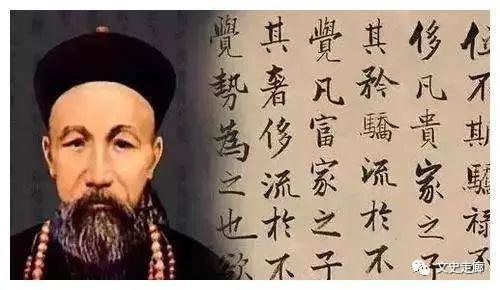 位不期驕祿不
侈凡貴家之子
其矜驕流於不
覺凡富家之子
其奢侈流於不
覺勢為之也欲
文史走廊